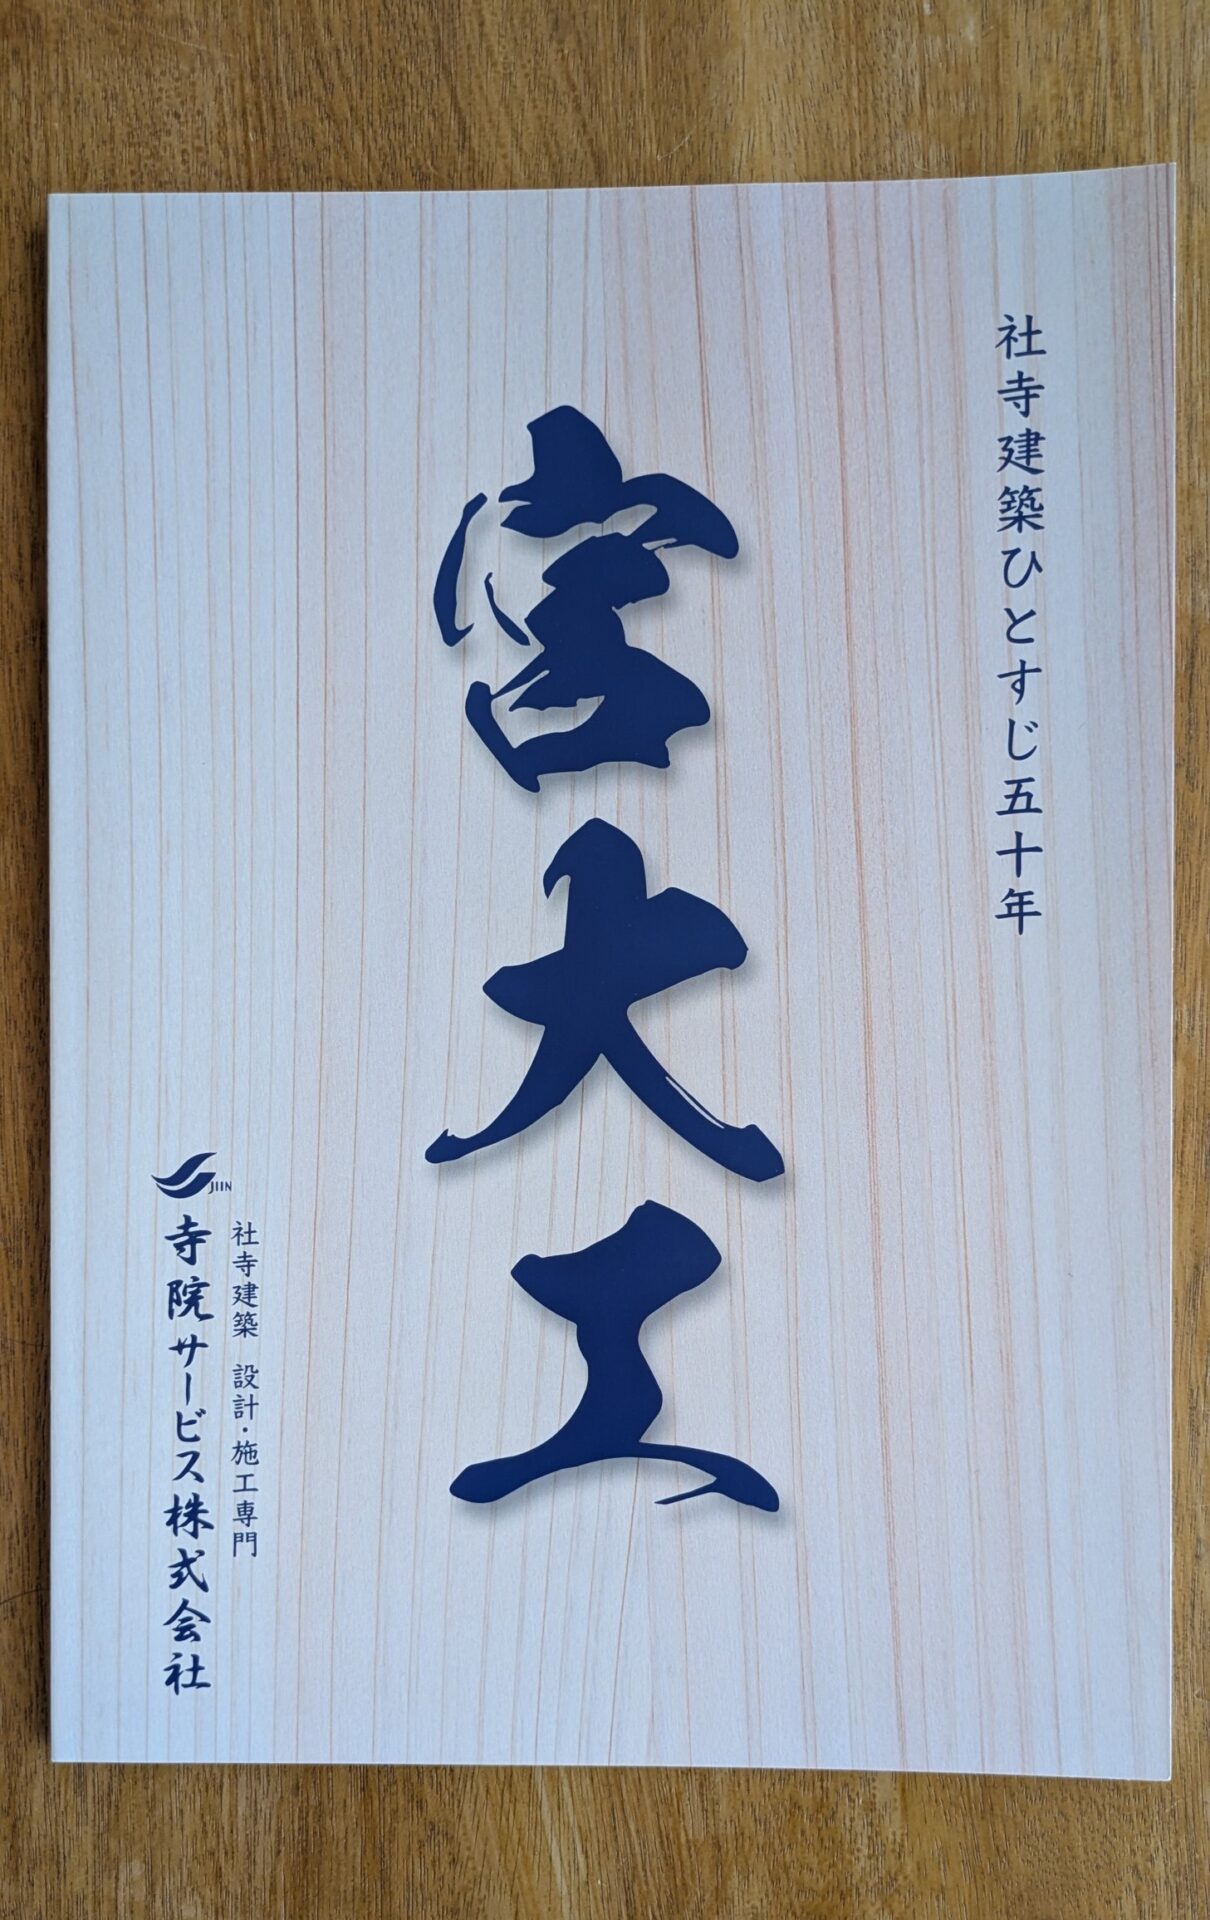 社寺建築ひとすじ五十年
宮大工
社寺建築 設計・施工専門
JIIN
寺院サービス株式会社